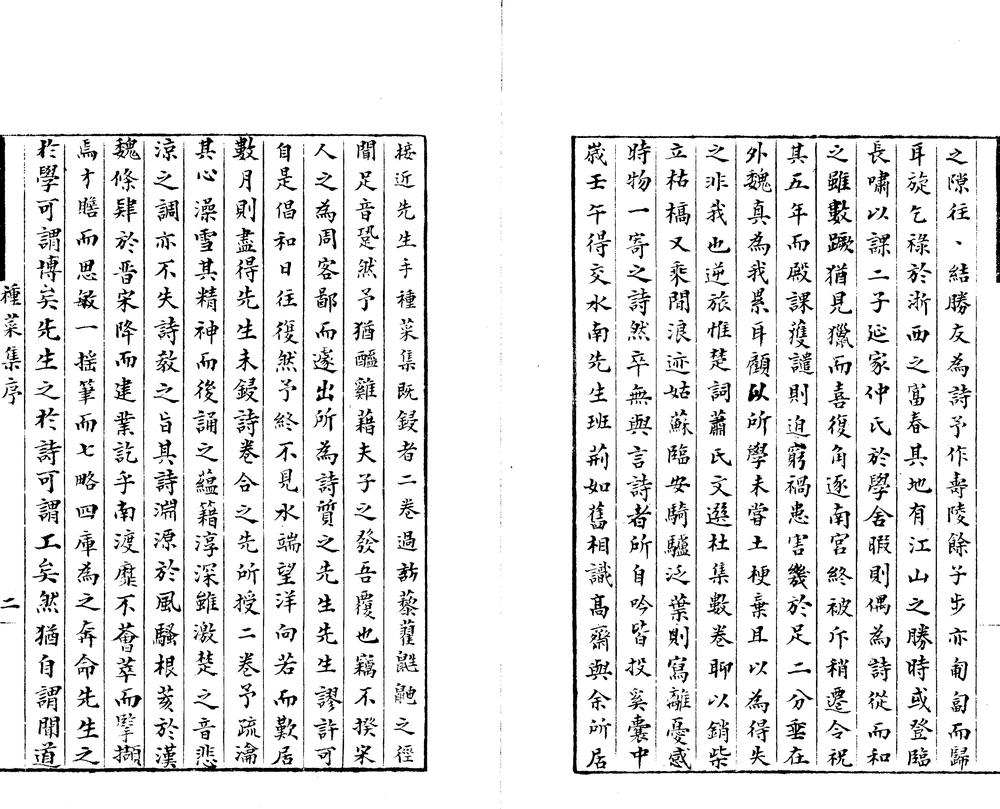 之隙往、結勝友為詩予作壽陵餘子步亦匍匐而歸
耳旋乞祿於浙西之富春其地有江山之勝時或登臨
長嘯以課二子延家仲氏於學舍暇則偶為詩從而和
之雖數蹶猶見獵而喜復角逐南宮終被斥稍遷令祝
其五年而殿課獲譴則迫窮禍患害幾於足二分垂在
外魏真為我累耳顧以所學未甞土梗棄且以為得失
之非我也逆旅惟楚詞蕭氏文選杜集數卷聊以銷柴
立枯槁又乘間浪迹姑蘇臨安騎驢泛葉則寫離憂感
時物一寄之詩然卒無與言詩者所自吟皆投奚囊中
歲壬午得交水南先生班荊如舊相識高齋與余所居
接近先生手種菜集既鋟者二卷過訪藜藿鼪鼬之徑
間足音跫然予猶醯雞藉夫子之發吾覆也竊不揆宋
人之為周客鄙而遽出所為詩質之先生先生謬許可
自是倡和日往復然予終不見水端望洋向若而歎居
數月則盡得先生未鋟詩卷合之先所授二卷予疏瀹
其心澡雪其精神而後誦之蘊藉淳深雖激楚之音悲
涼之調亦不失詩教之旨其詩淵源於風騷根荄於漢
魏條肄於晋宋降而建業訖乎南渡靡不薈萃而擘擷
焉才瞻而思敏一揺筆而七略四庫為之奔命先生之
於學可謂博矣先生之於詩可謂工矣然猶自謂聞道
種菜集序
二